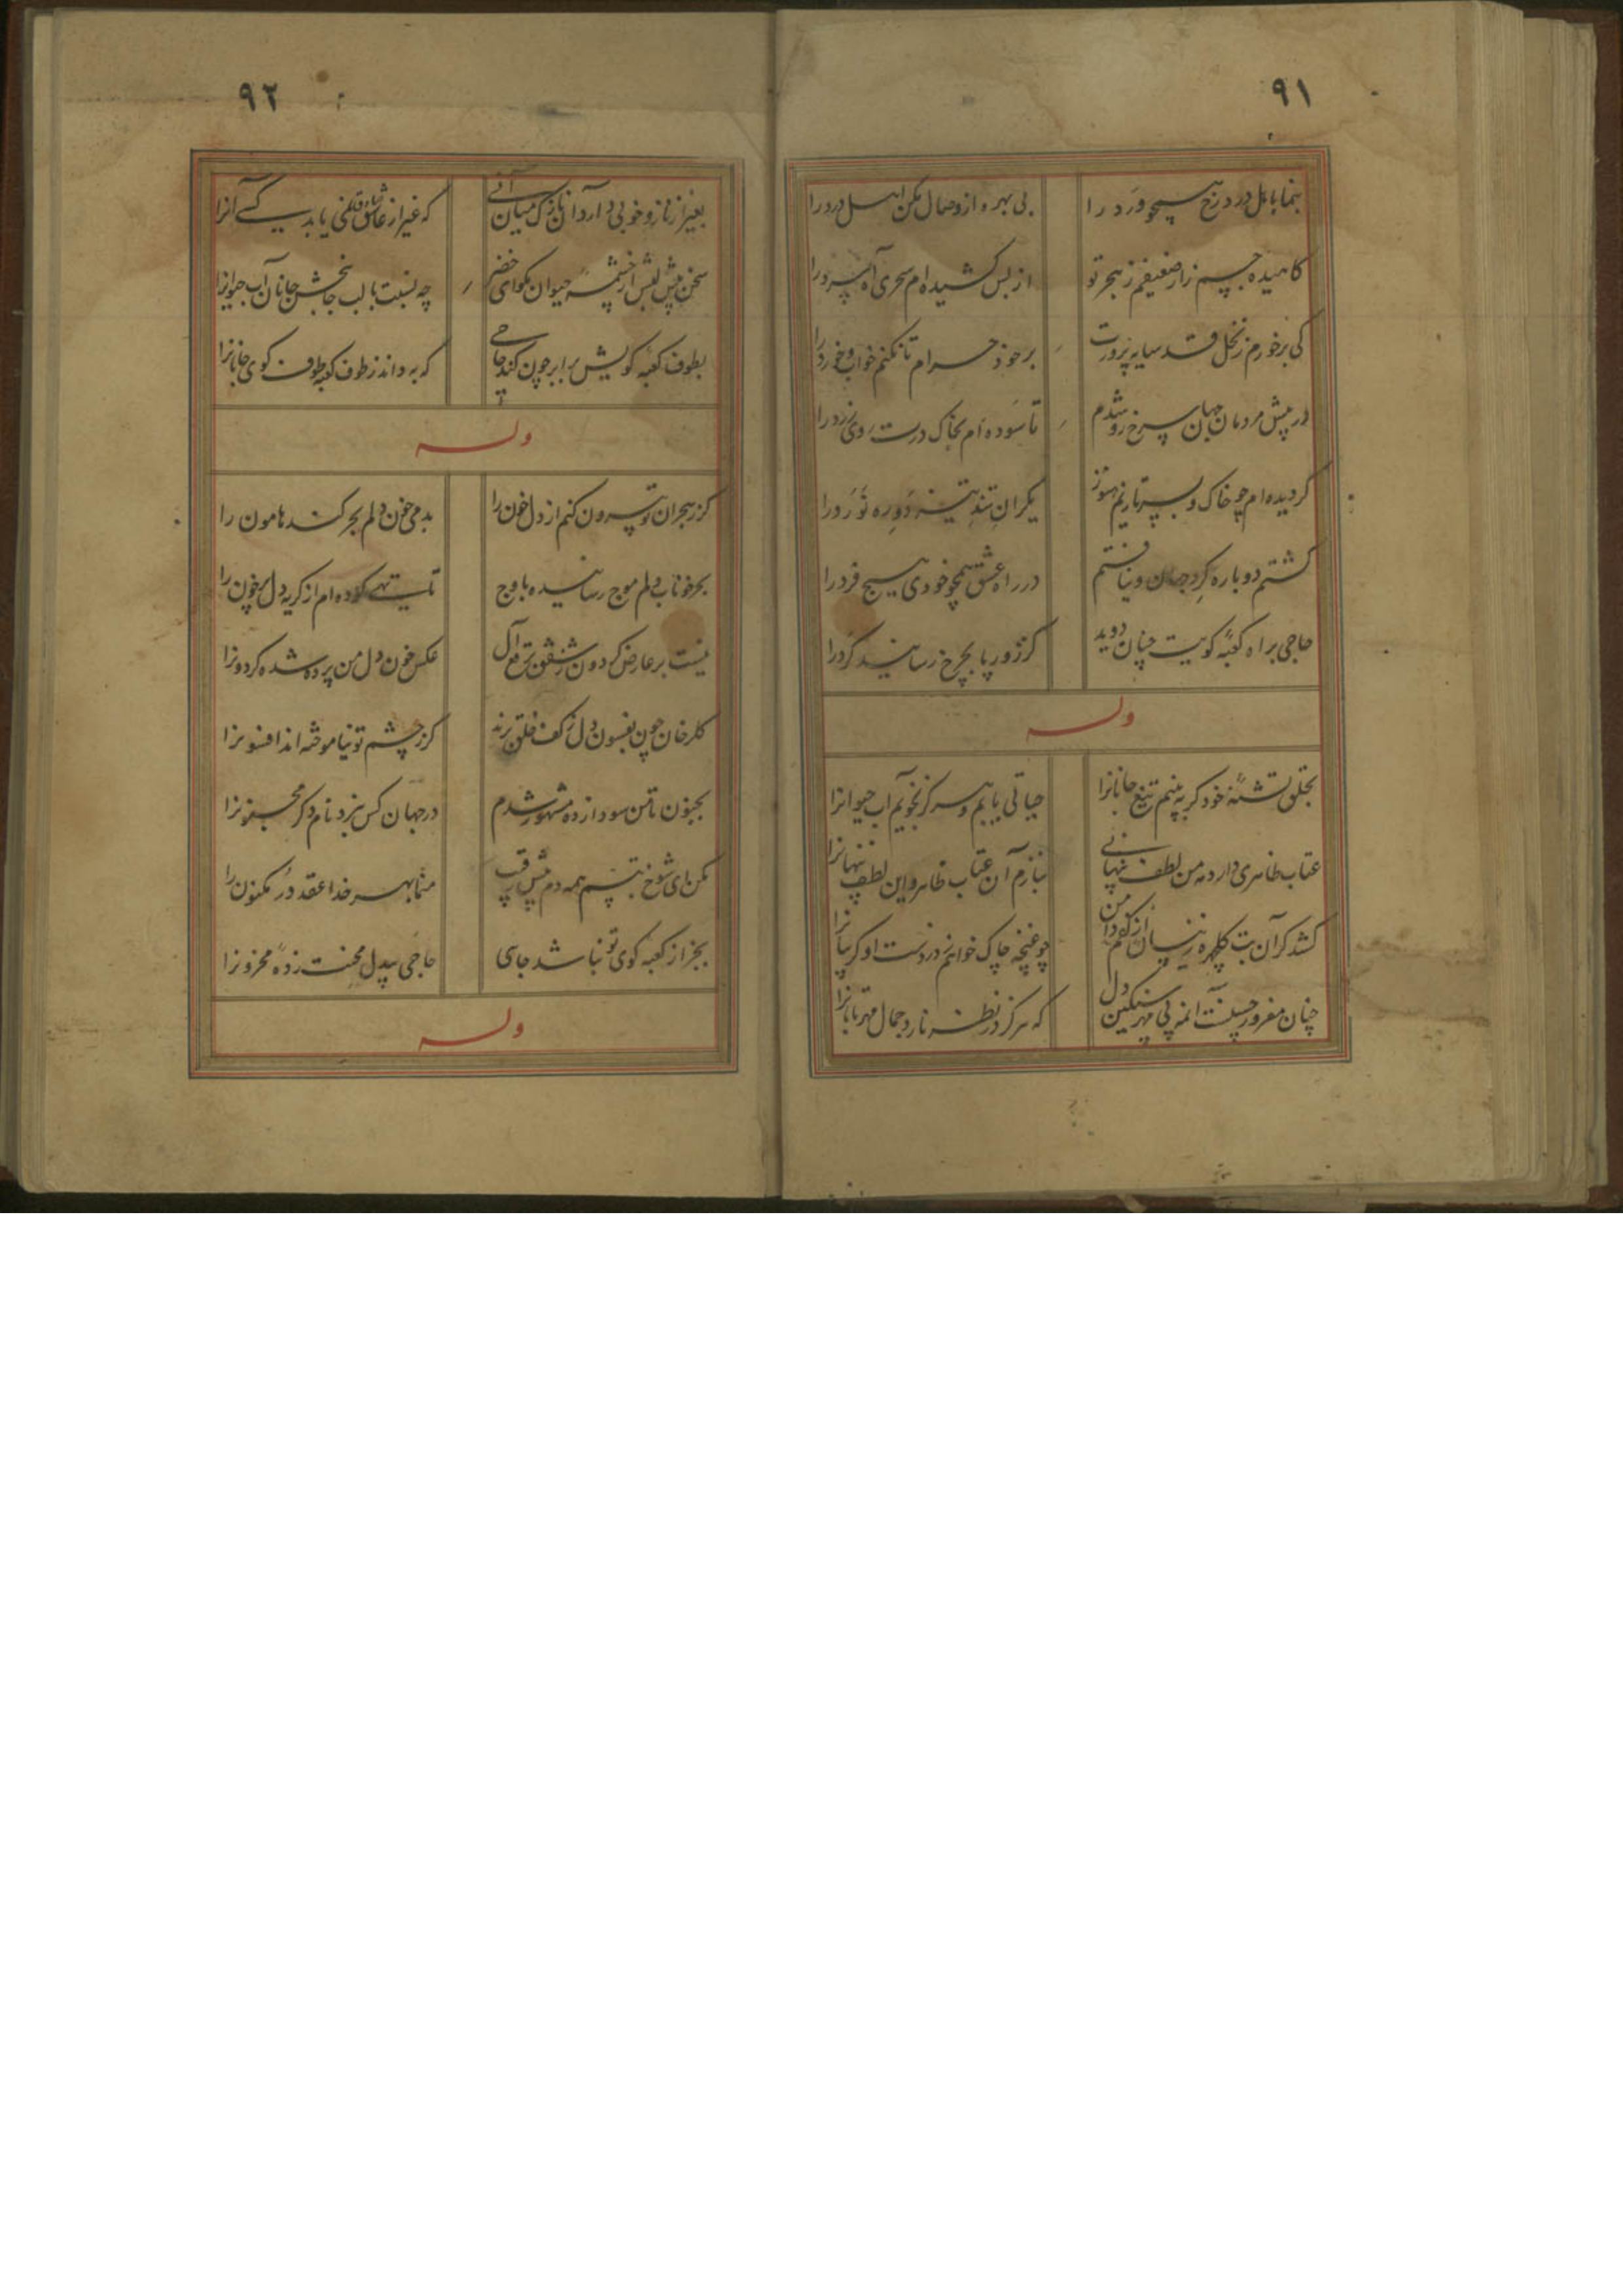 ۹۱
بنما باهل درد رخ همچو ورد را
بی بهره از وصال مکن اهل درد را
کاهیده جسم زار ضعیفم ز هجر تو
از بس کشیده ام سحری آه سرد را
کی برخورم ز نخل قد سایه پرورت
بر خود حرام تا نکنم خواب و خورد را
در پیش مردمان جهان سرخ رو شدم
تا سوده ام بخاک درت روی زرد را
گردیده ام چو خاک و بسر تازیم هنوز
یکران تند دوره نورد را
گشتم دوباره گرد جهان و نیافتم
در راه عشق همچو خودی هیچ فرد را
حاجی براه کعبه کویت چنان دوید
کز زور پا بچرخ رسانید گرد را
وله
بحلق تشنه خود گر به بینم تیغ جانانرا
حیاتی یابم و هرگز نجویم آب حیوانرا
عتاب ظاهری دارد به من لطف نهانی
بنازم آن عتاب ظاهر و این لطف پنهانرا
کشد گر آن بت گلچهره زینسان از کفم دامن
چو غنچه چاک خواهم زد ز دست او گریبانرا
چنان مغرور حسنست آنمه بی مهر سنگین دل
که هرگز در نظر نارد جمال مهر تابانرا
۹۲
بغیر از ناز و خوبی دارد آن نازک میان آنی
که غیر از عاشق نمی یابد کسی آنرا
سخن پیش لبش از چشمه حیوان مگو ای خضر
چه نسبت با لب جانبخش جانان آب حیوانرا
بطوف کعبه کویش برابر چون کند حاجی
که به داند ز طوف کعبه طوف کوی جانانرا
وله
گر ز هجران تو بیرون کنم از دل خون را
بدمی خون دلم بحر کند هامون را
بحر خوناب دلم موج رسانیده باوج
تا تهی کرده ام از گریه دل پرخون را
نیست بر عارض گردون ز شفق برقع آل
عکس خون دل من پرده شده گردونرا
گلرخان چون بفسون دل ز کف خلق برند
گر ز چشم تو نیاموخته اند افسونرا
بجنون تا من سودازده مشهور شدم
در جهان کس نبرد نام دگر مجنونرا
مکن ای شوخ تبسم همه دم پیش رقیب
منما بهر خدا عقد در مکنون را
بجز از کعبه کوی تو نباشد جایی
حاجی بیدل محنت زده محزونرا
وله